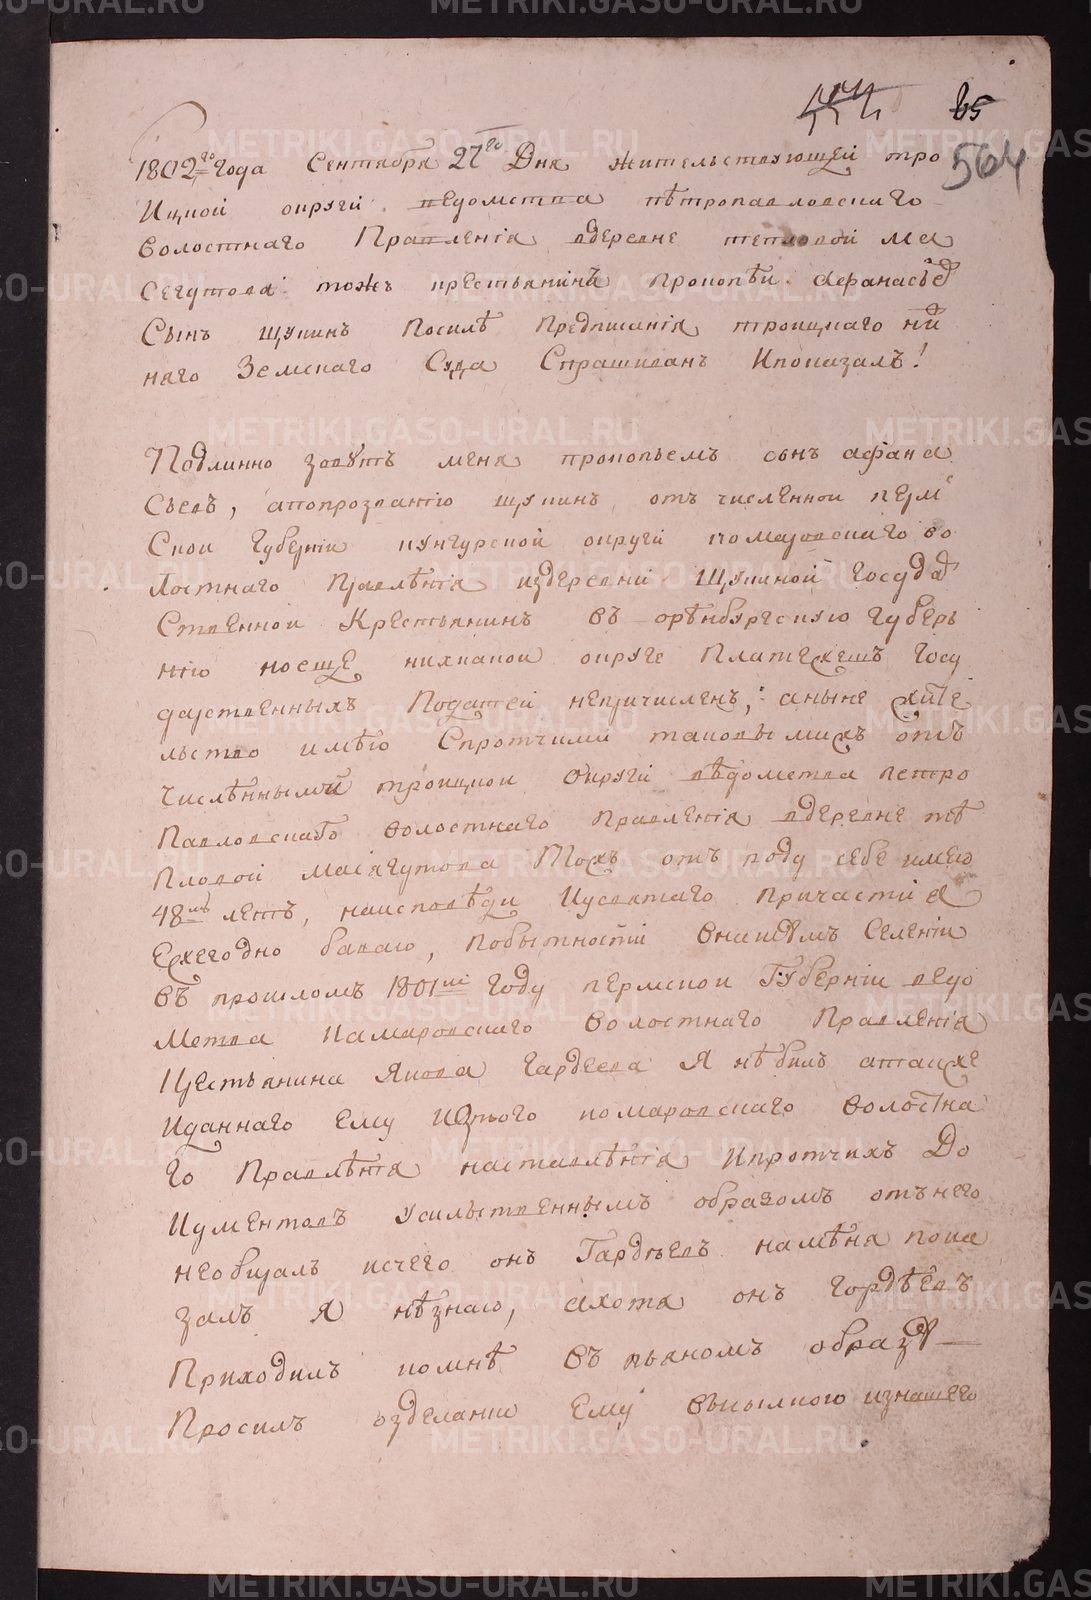 65
564
1802го года Сентября 27го Дня жительствующей тро
ицкой округи ведомства пѣтропавловскаго
волостнаго Правленія вдеревне тепловой ма
сегутова тожъ крестьянинъ Прокопѣи Афанасьѣв
Сынъ Щукинъ Посилѣ Предписанія троицкаго ни
няго Земскаго Суда Спрашиванъ Ипоказалъ!
Подлинно зовутъ меня прокопьемъ сынъ афана
Сьевъ, апопрозванію щукинъ, отчисленнои перм
Скои Губерніи кунгурской округи комаровскаго во
лостнаго Правлѣнія издеревни Щукиной Госуда
Ственнои Крестьянинъ въ орѣнбурскую Губерь
нію ноеще никакои округе Платежемъ Госу
дарственныхъ Податей непричисленъ, аныне жите
льство имѣю Спротчими таковымижъ отъ
Числѣнными троицкои Округи вѣдомства петро
Павловскаго волостнаго Правленія вдеревне тѣ
Пловой масягутова Тожъ отъ роду себе имею
48мъ летъ, наисповѣди Исвятаго Причастия
Ежегодно бываю, Побытности Внашемъ Селеніи
въ прошломъ 1801мъ Году пермскои Губерніи ведо
Мства Камаровскаго волостнаго Правленія
Крестьянина Якова Гардеева Я нѣбилъ атакже
Иданнаго Ему Изтого комаровскаго волостна
го Правлѣнія наставлѣнія Ипротчихъ До
Кументовъ усильственнымъ образомъ отънего
необиралъ исчего онъ Гардѣевъ намѣня пока
залъ я нѣзнаю, ахотя онъ Гордѣевъ
Приходилъ комнѣ въ пьяномъ образѣ
Просилъ озделании Ему высылного изнашего